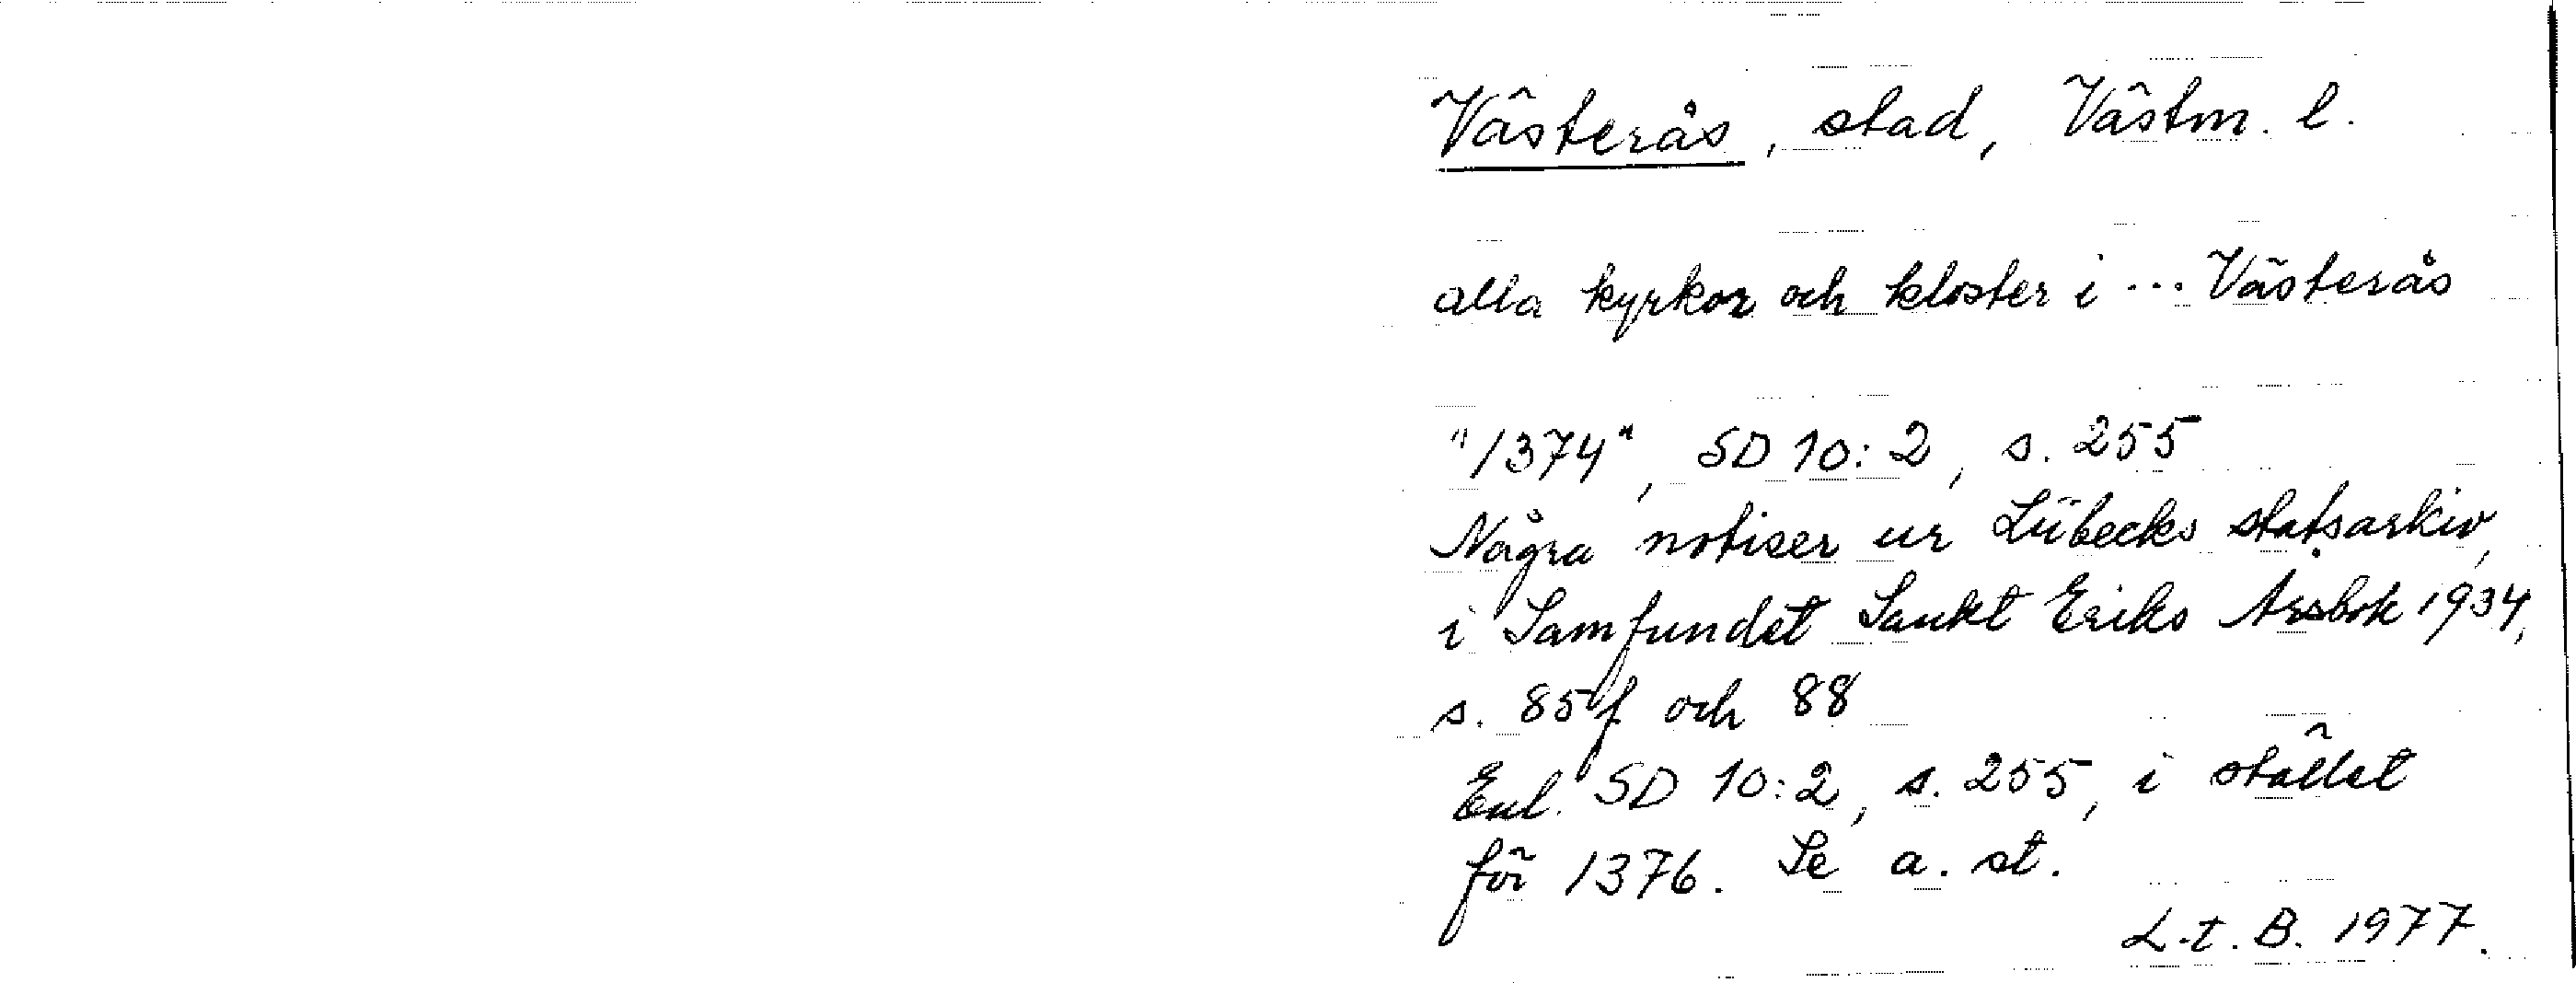 Västerås, stad, Västm. l.
alla kyrkor och kloster i ... Västerås
"1374", SD 10:2, s. 255
Några notiser ur Lübecks statsarkiv,
i Samfundet Sankt Eriks Årsbok 1934,
s. 85 f och 88
Enl. SD 10:2, s. 255, i stället
för 1376. Se a. st.
L. t. B. 1977.